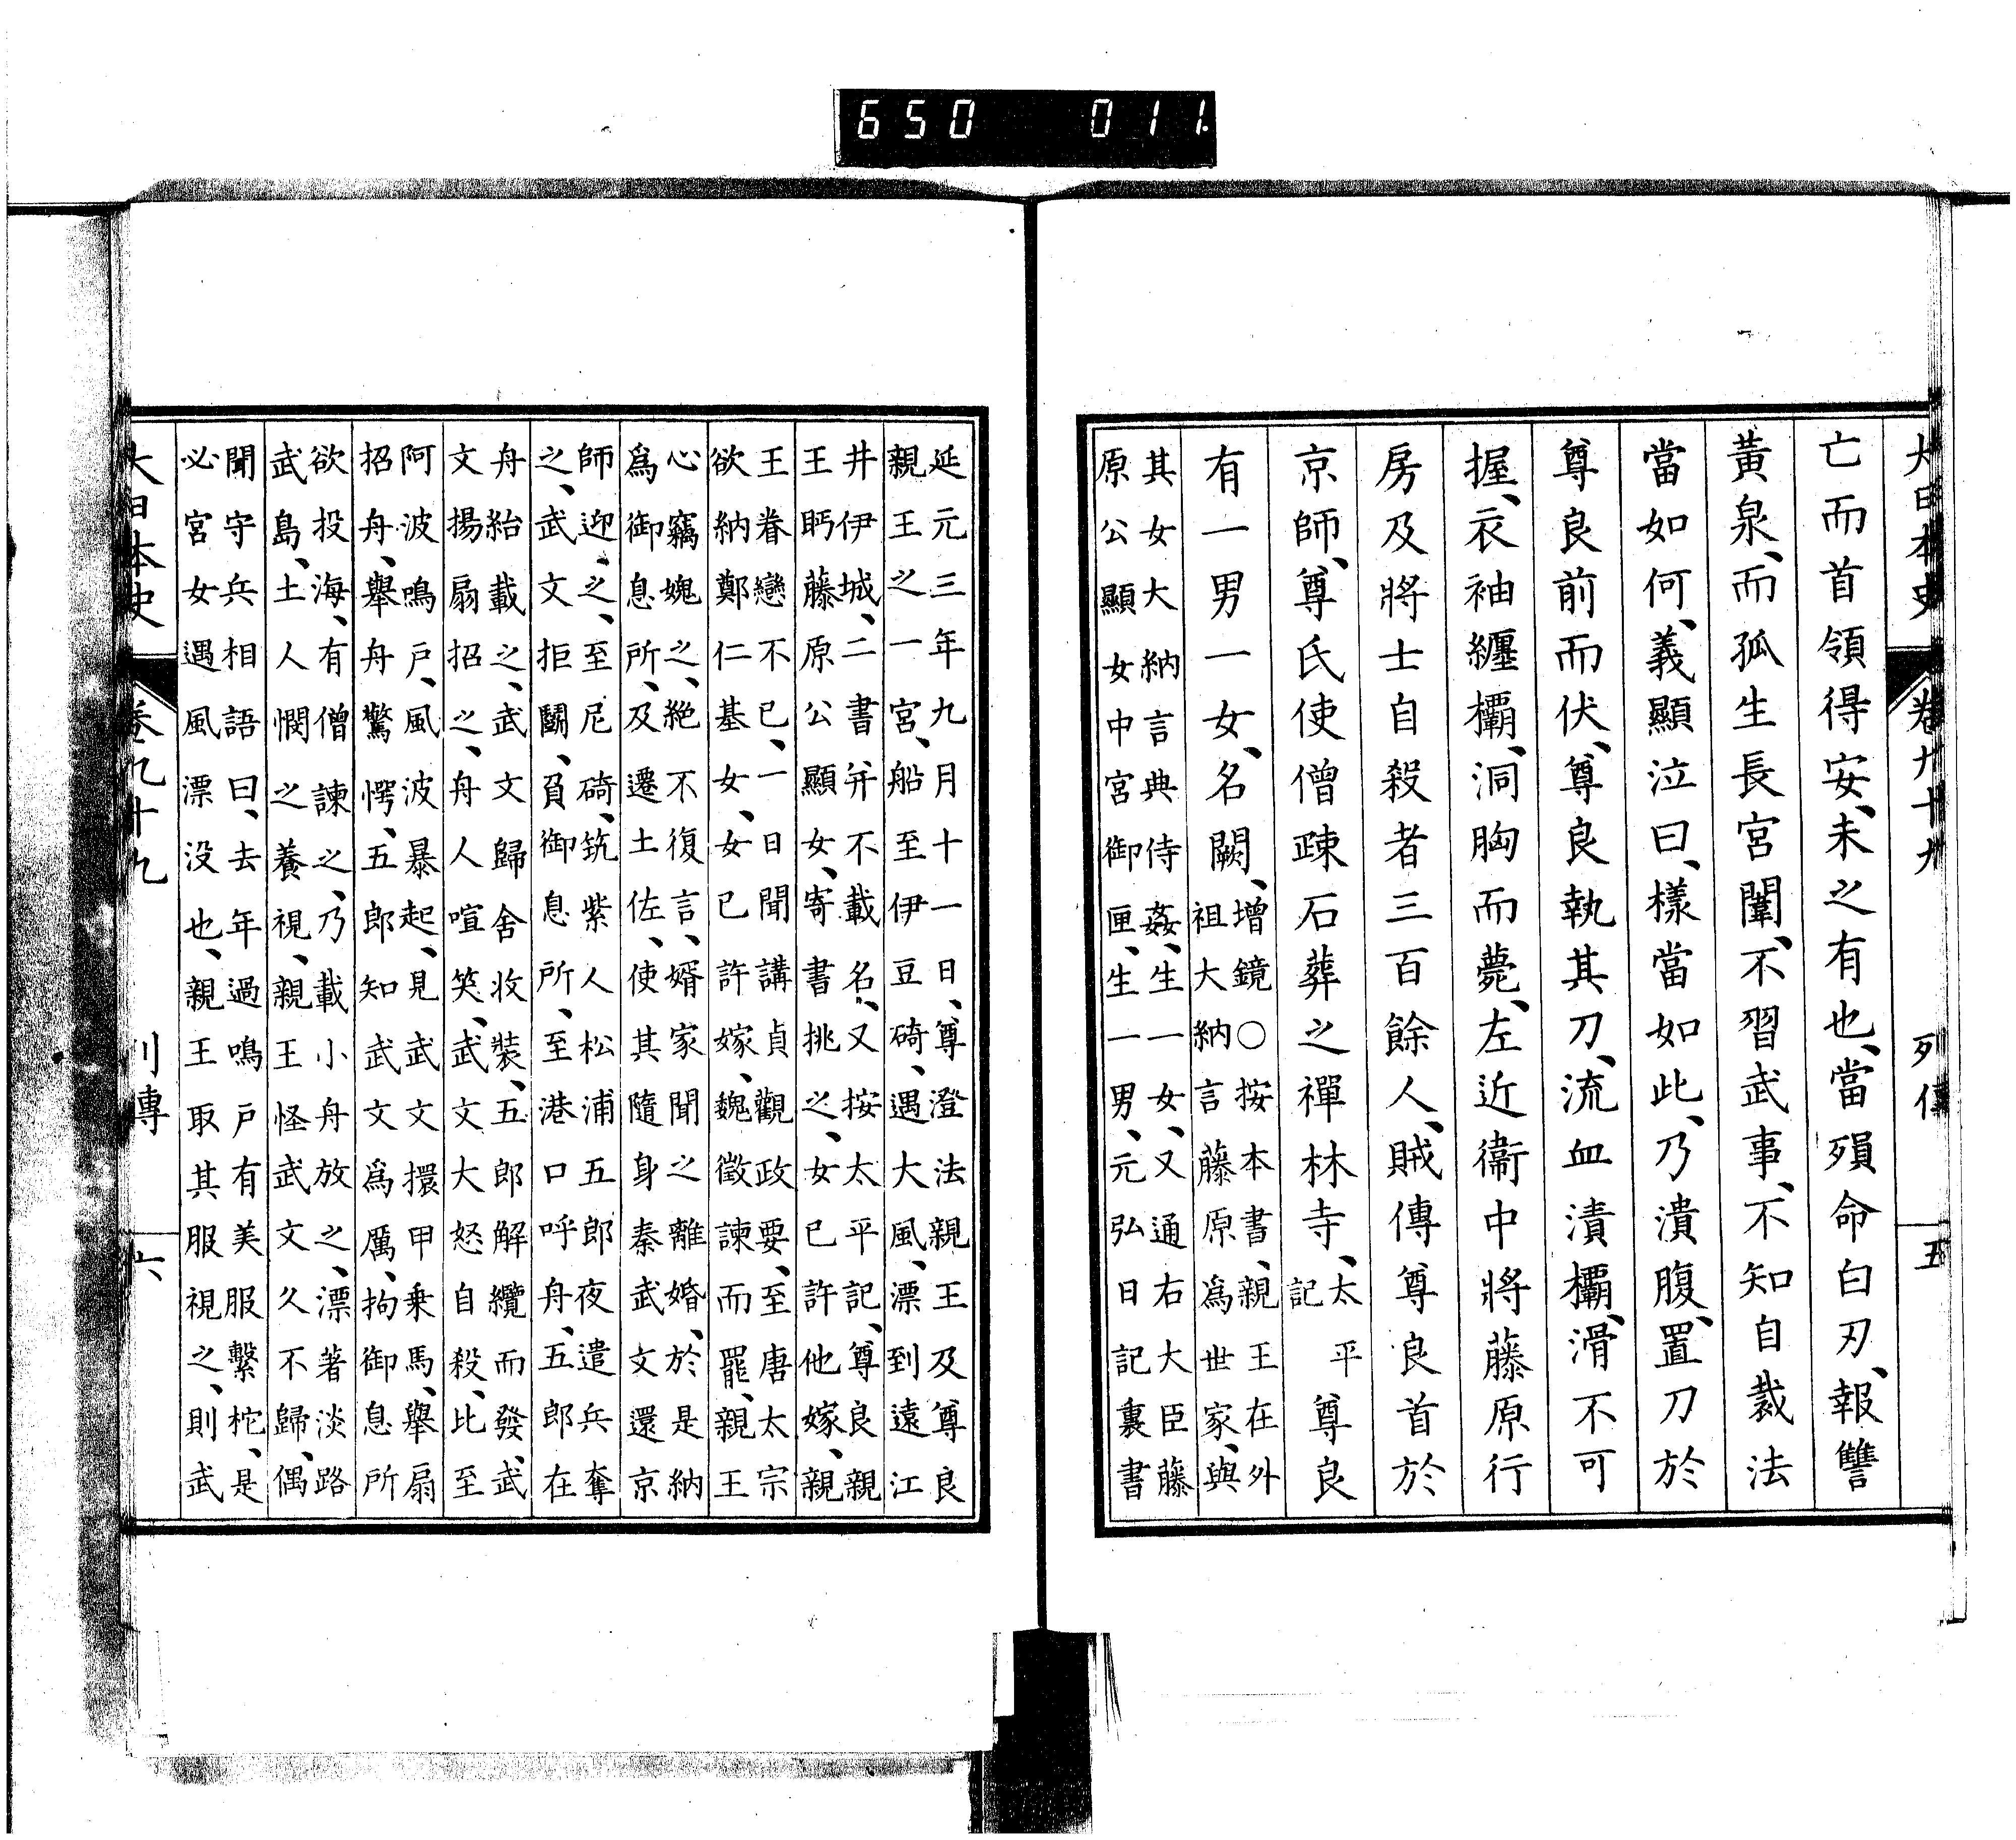 650 011.
大日本史 卷九十九 列傳 五
亡而首領得安、未之有也、當殞命白刃、報讐
黃泉、而孤生長宮闈、不習武事、不知自裁法
當如何、義顯泣曰、樣當如此、乃潰腹、置刀於
尊良前而伏、尊良執其刀、流血漬欛、滑不可
握、衣袖纒欛、洞胸而薨、左近衞中將藤原行
房及將士自殺者三百餘人、賊傳尊良首於
京師、尊氏使僧疎石葬之禪林寺、太平記 尊良
有一男一女、名闕、增鏡○按本書、親王在外
祖大納言藤原爲世家、與
其女大納言典侍姦、生一女、又通右大臣藤
原公顯女中宮御匣、生一男、元弘日記裏書
延元三年九月十一日、尊澄法親王及尊良
親王之一宮、船至伊豆碕、遇大風、漂到遠江
井伊城、二書並不載名、又按太平記、尊良親
王眄藤原公顯女、寄書挑之、女已許他嫁、親
王眷戀不已、一日聞講貞觀政要、至唐太宗
欲納鄭仁基女、女已許嫁、魏徵諫而罷、親王
心竊媿之、絶不復言、婿家聞之離婚、於是納
爲御息所、及遷土佐、使其隨身秦武文還京
師迎之、至尼碕、筑紫人松浦五郎夜遣兵奪
之、武文拒鬬、負御息所、至港口呼舟、五郎在
舟紿載之、武文歸舍收裝、五郎解纜而發、武
文揚扇招之、舟人喧笑、武文大怒自殺、比至
阿波鳴戸、風波暴起、見武文擐甲乗馬、舉扇
招舟、舉舟驚愕、五郎知武文爲厲、拘御息所
欲投海、有僧諫之、乃載小舟放之、漂著淡路
武島、土人憫之養視、親王怪武文久不歸、偶
聞守兵相語曰、去年過鳴戸有美服繫柁、是
必宮女遇風漂没也、親王取其服視之、則武
大日本史 卷九十九 列傳 六